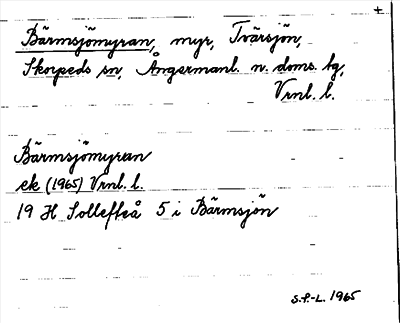 Bärmsjömyran, myr, Tvärsjön,
Skorpeds sn, Ångermanl. n. doms. lg,
Vrnl. l.
Bärmsjömyran
ek (1965) Vrnl. l.
19 H Solleffeå 5 i Bärmsjön
S.P.-L. 1965